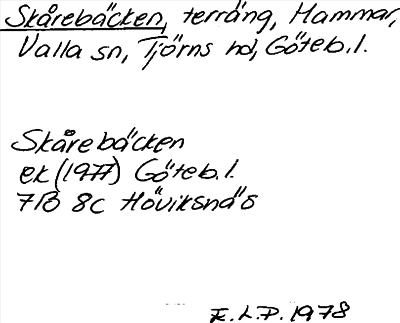 Skårebäcken, terräng, Hammar,
Valla sn, Tjörns hd, Göteb.l.
Skårebäcken
ek (1977) Göteb.l.
7B 8c Höviksnäs
E.L.P. 1978